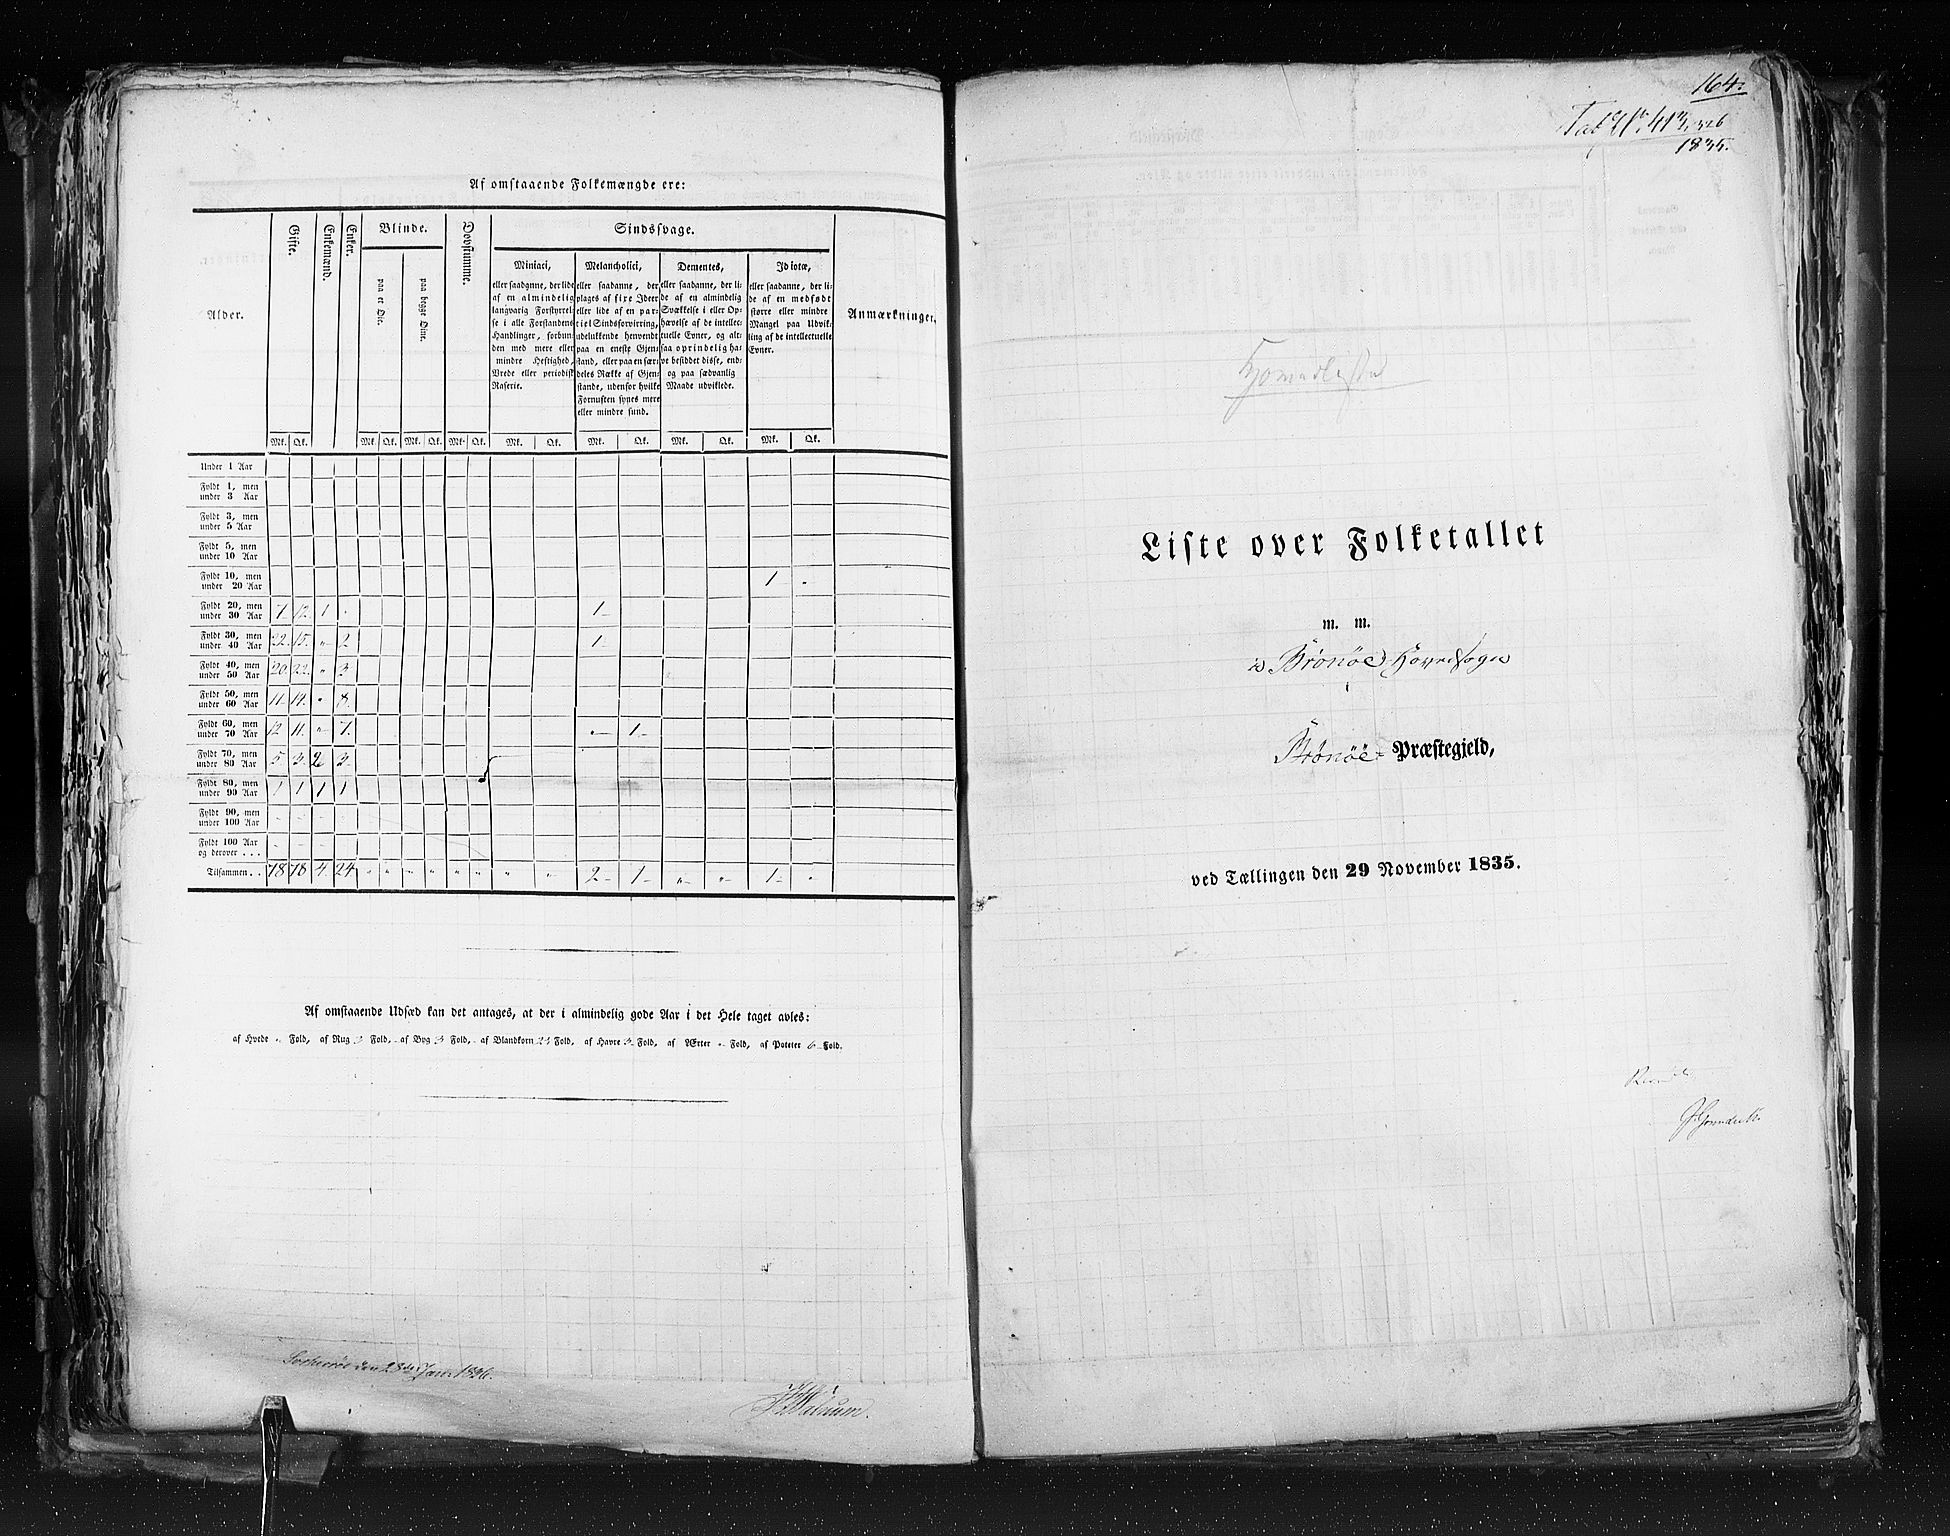 Af omstaaende Folkemængde ere:
Alder.
Gifte.
Enkemænd.
Enker.
Blinde.
paa et Øie.
paa begge Øine.
Døvstumme.
Sindssvage.
Miniaci,
eller saadanne, der lide
af en almindelig
langvarig Forstyrrel-
se i alle Forstandens
Handlinger, forbun-
den med mere eller
mindre Heftighed,
Vrede eller periodisk
Raserie.
Melancholici,
eller saadanne, der
plages af fixe Ideer
eller lide af en par-
tiel Sindsforvirring,
udelukkende henvendt
paa en eneste Gjen-
stand, eller paa en sær-
deles Række af Gjen-
stande, udenfor hvilke
Fornuften synes mere
eller mindre sund.
Dementes,
eller saadanne, der li-
de af en almindelig
Svækkelse i eller Op-
hævelse af de intellec-
tuelle Evner, og alt-
saa oprindelig ha-
ve besiddet disse, end-
og paa sædvanlig
Maade udviklede.
Idiotæ,
eller saadanne, der li-
de af en medfødt
større eller mindre
Mangel paa Udvik-
ling af de intellectuelle
Evner.
Anmærkninger.
Mk. Qk. Mk. Qk. Mk. Qk. Mk. Qk. Mk. Qk. Mk. Qk. Mk. Qk. Mk. Qk.
Under 1 Aar
Fyldt 1, men
under 3 Aar
Fyldt 3, men
under 5 Aar
Fyldt 5, men
under 10 Aar
Fyldt 10, men
under 20 Aar 1 "
Fyldt 20, men
under 30 Aar 7 12 1 " 1
Fyldt 30, men
under 40 Aar 22 15 " 2 1
Fyldt 40, men
under 50 Aar 20 22 " 3
Fyldt 50, men
under 60 Aar 11 14 " 8
Fyldt 60, men
under 70 Aar 12 11 " 7 " 1
Fyldt 70, men
under 80 Aar 5 3 2 3
Fyldt 80, men
under 90 Aar 1 1 1 1
Fyldt 90, men
under 100 Aar
Fyldt 100 Aar
og derover . . .
Tilsammen . . 78 78 4 24 " " " " " " " " 2 1 " " 1 "
Af omstaaende Udsæd kan det antages, at der i almindelig gode Aar i det Hele taget avles:
af Hvede " Fold, af Rug 3 Fold, af Byg 3 Fold, af Blandkorn Fold, af Havre 3 Fold, af Ærter " Fold, af Poteter 6 Fold.
den 28de Jan. 1836.
164.
1835.
Liste over Folketallet
m. m.
i Brønöe Hovedsogn
Brønöe Præstegjeld,
ved Tællingen den 29 November 1835.